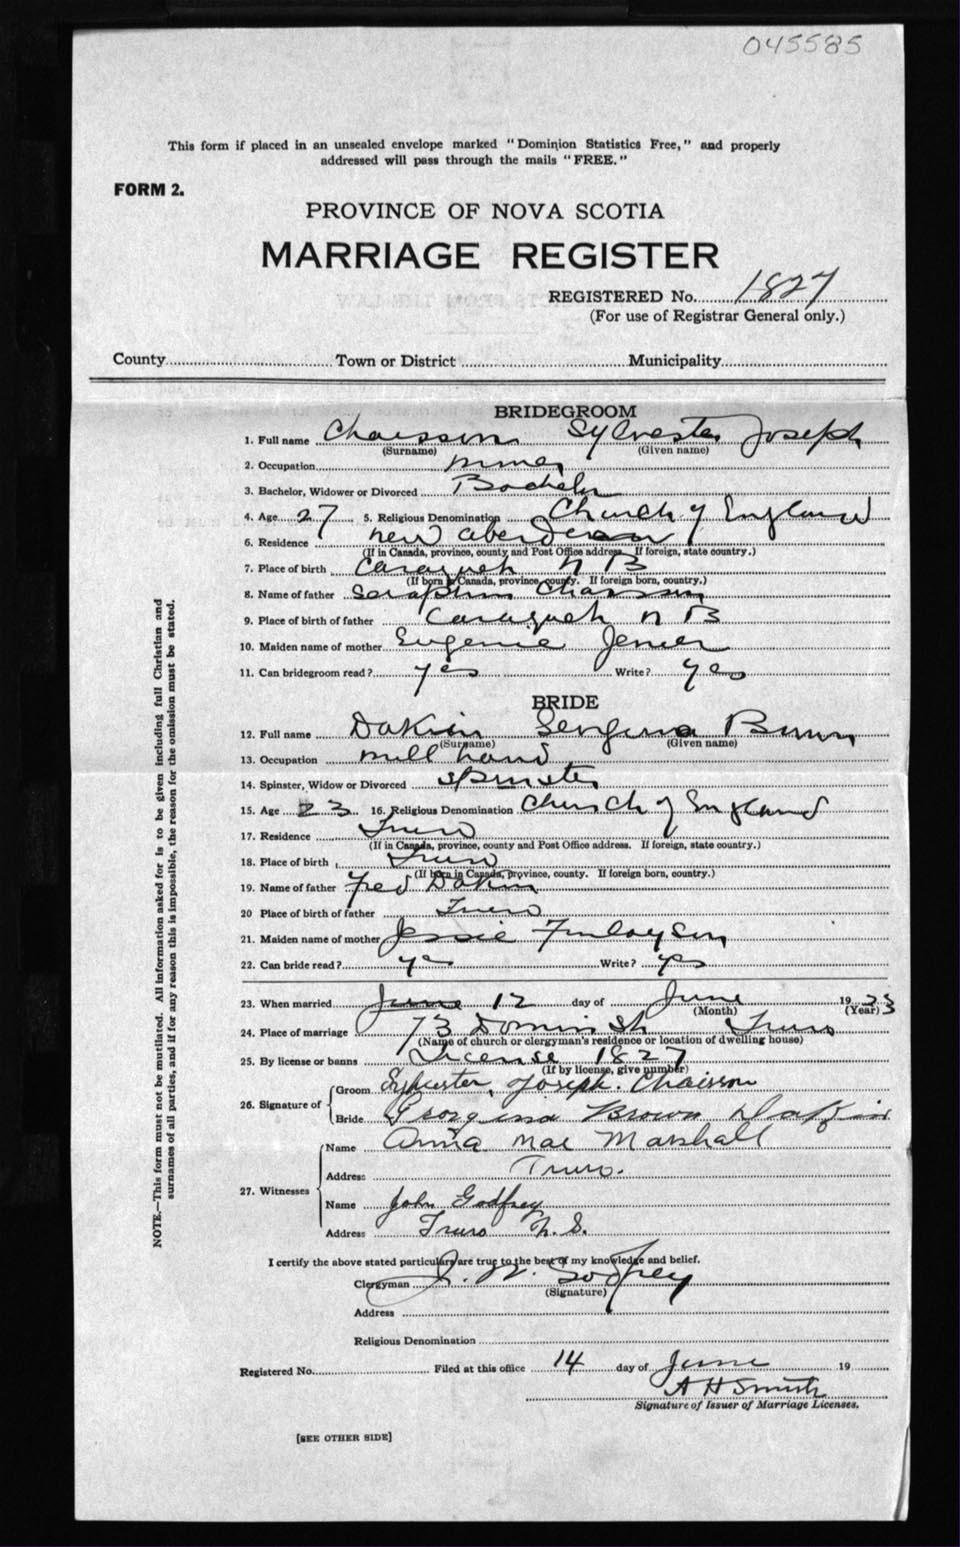 045585
This form if placed in an unsealed envelope marked "Dominion Statistics Free," and properly
addressed will pass through the mails "FREE."
FORM 2.
PROVINCE OF NOVA SCOTIA
MARRIAGE REGISTER
REGISTERED No. 1827
(For use of Registrar General only.)
County Town or District Municipality
BRIDEGROOM
1. Full name Chaisson Sylvester Joseph
(Surname) (Given name)
2. Occupation miner
3. Bachelor, Widower or Divorced Bachelor
4. Age 27 5. Religious Denomination Church of England
6. Residence New Aberdeen
(If in Canada, province, county and Post Office address. If foreign, state country.)
7. Place of birth Caraqueh N B
(If born in Canada, province, county. If foreign born, country.)
8. Name of father Seraphim Chaisson
9. Place of birth of father Caraqueh N B
10. Maiden name of mother Eugenie
11. Can bridegroom read? yes Write? yes
BRIDE
12. Full name Dakin Brown
(Surname) (Given name)
13. Occupation mill hand
14. Spinster, Widow or Divorced spinster
15. Age 23 16. Religious Denomination Church of England
17. Residence Truro
(If in Canada, province, county and Post Office address. If foreign, state country.)
18. Place of birth Truro
(If born in Canada, province, county. If foreign born, country.)
19. Name of father Fred Dakin
20 Place of birth of father Truro
21. Maiden name of mother Jessie Finlayson
22. Can bride read? yes Write? yes
23. When married June 12 day of June 1933
(Month) (Year)
24. Place of marriage 73 Domin St Truro
(Name of church or clergyman's residence or location of dwelling house)
25. By license or banns License 1827
(If by license, give number)
26. Signature of
Groom Sylvester Joseph. Chaisson
Bride Georgina Brown Dakin
27. Witnesses
Name Anna Mae Marshall
Address Truro.
Name John Godfrey
Address Truro N. S.
I certify the above stated particulars are true to the best of my knowledge and belief.
Clergyman J. W. Godfrey
(Signature)
Address
Religious Denomination
Registered No. Filed at this office 14 day of June 19
A H Smith
Signature of Issuer of Marriage Licenses.
[SEE OTHER SIDE]
NOTE.—This form must not be mutilated. All information asked for is to be given including full Christian and
surnames of all parties, and if for any reason this is impossible, the reason for the omission must be stated.